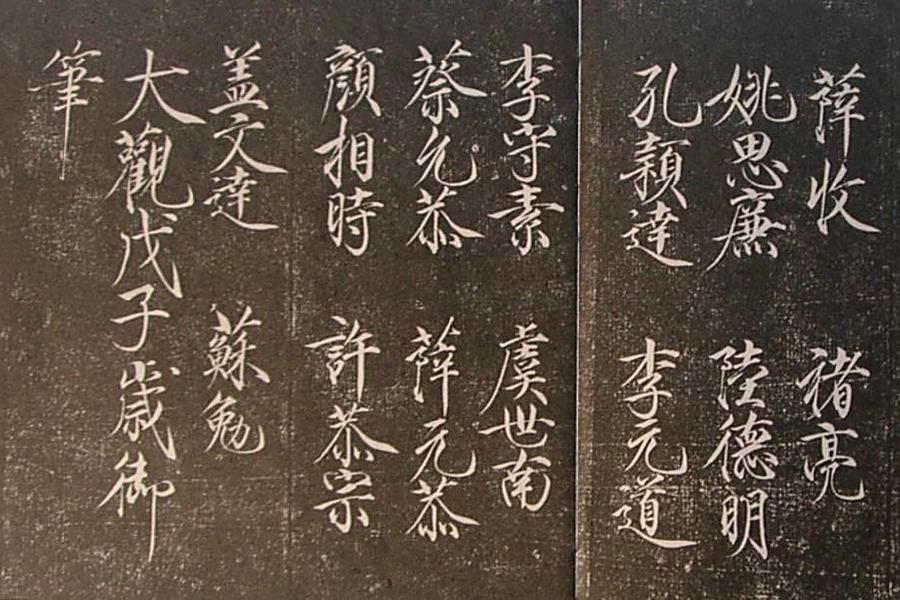 薛收 褚亮
姚思廉 陸德明
孔穎達 李元道
李守素 虞世南
蔡允恭 薛元恭
顏相時 許恭宗
盖文達 蘇勉
大觀戊子歲御
筆